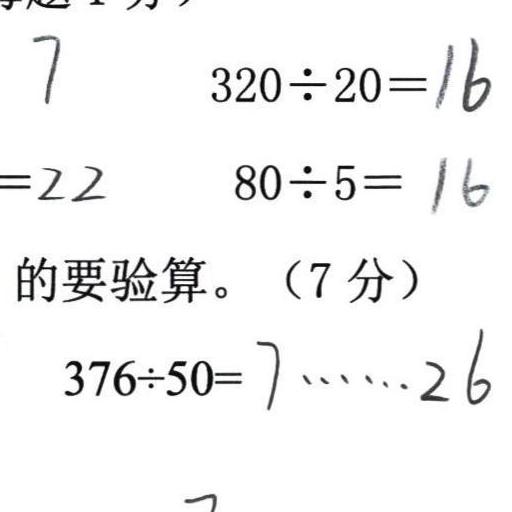 7 320÷20=16
=22 80÷5= 16
的要验算。（7 分）
376÷50=7……26